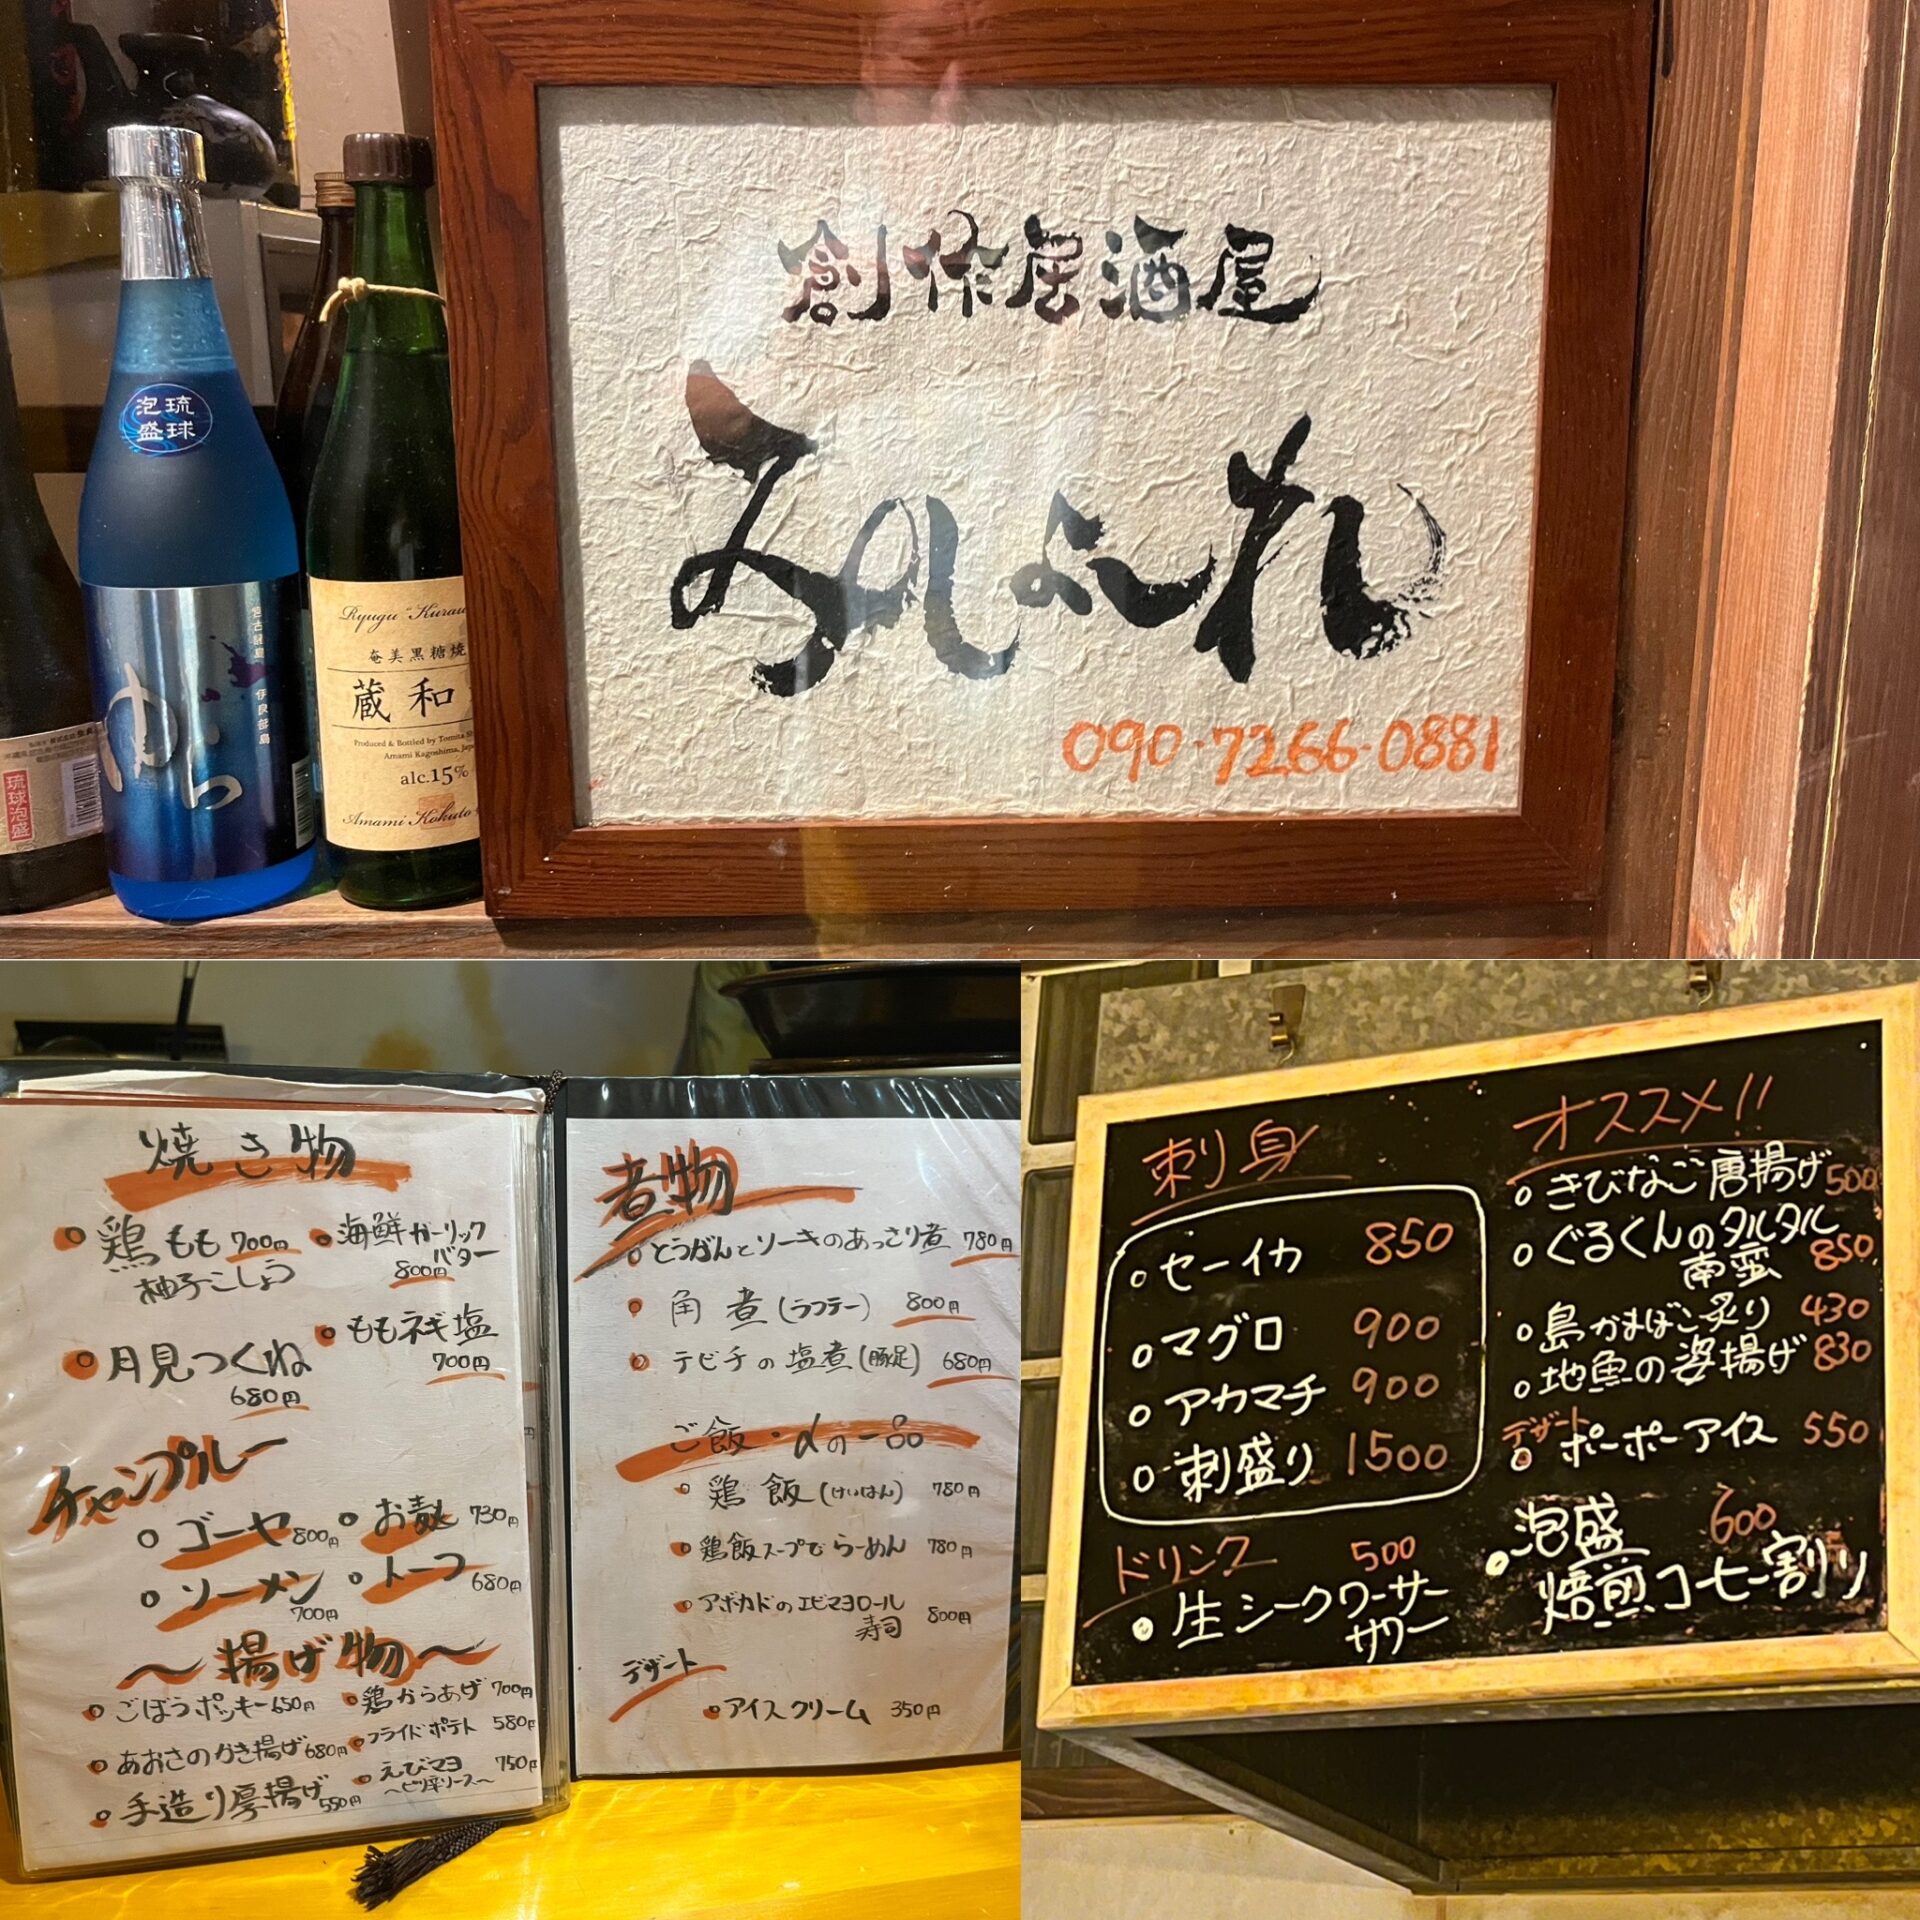 創作居酒屋
090-7266-0881
琉球
泡盛
宮古諸島 伊良部島
ゆら
琉球泡盛
Ryugu "Kurau
奄美黒糖焼
蔵和
Produced & Bottled by Tomita Sh
Amami Kagoshima, Japa
alc.15%
Amami Kokuto
焼き物
鶏もも 700円
柚子こしょう
海鮮ガーリック
バター
800円
月見つくね
680円
ももネギ塩
700円
チャンプルー
ゴーヤ 800円
お麩 730円
ソーメン
700円
トーフ 680円
〜揚げ物〜
ごぼうポッキー 650円
鶏からあげ 700円
あおさのかき揚げ 680円
フライドポテト 580円
手造り厚揚げ 550円
えびマヨ 750円
〜ピリ辛ソース〜
煮物
とうがんとソーキのあっさり煮 780円
角煮(ラフテー) 800円
テビチの塩煮(豚足) 680円
ご飯・αの一品
鶏飯(けいはん) 780円
鶏飯スープでらーめん 780円
アボカドのエビマヨロール
寿司 800円
デザート
アイスクリーム 350円
刺身
セーイカ 850
マグロ 900
アカマチ 900
刺盛り 1500
ドリンク 500
生シークワーサー
サワー
オススメ!!
きびなご唐揚げ 500
ぐるくんのタルタル
南蛮 850
島かまぼこ炙り 430
地魚の姿揚げ 830
デザート
ポーポーアイス 550
泡盛 600
焙煎コーヒー割り